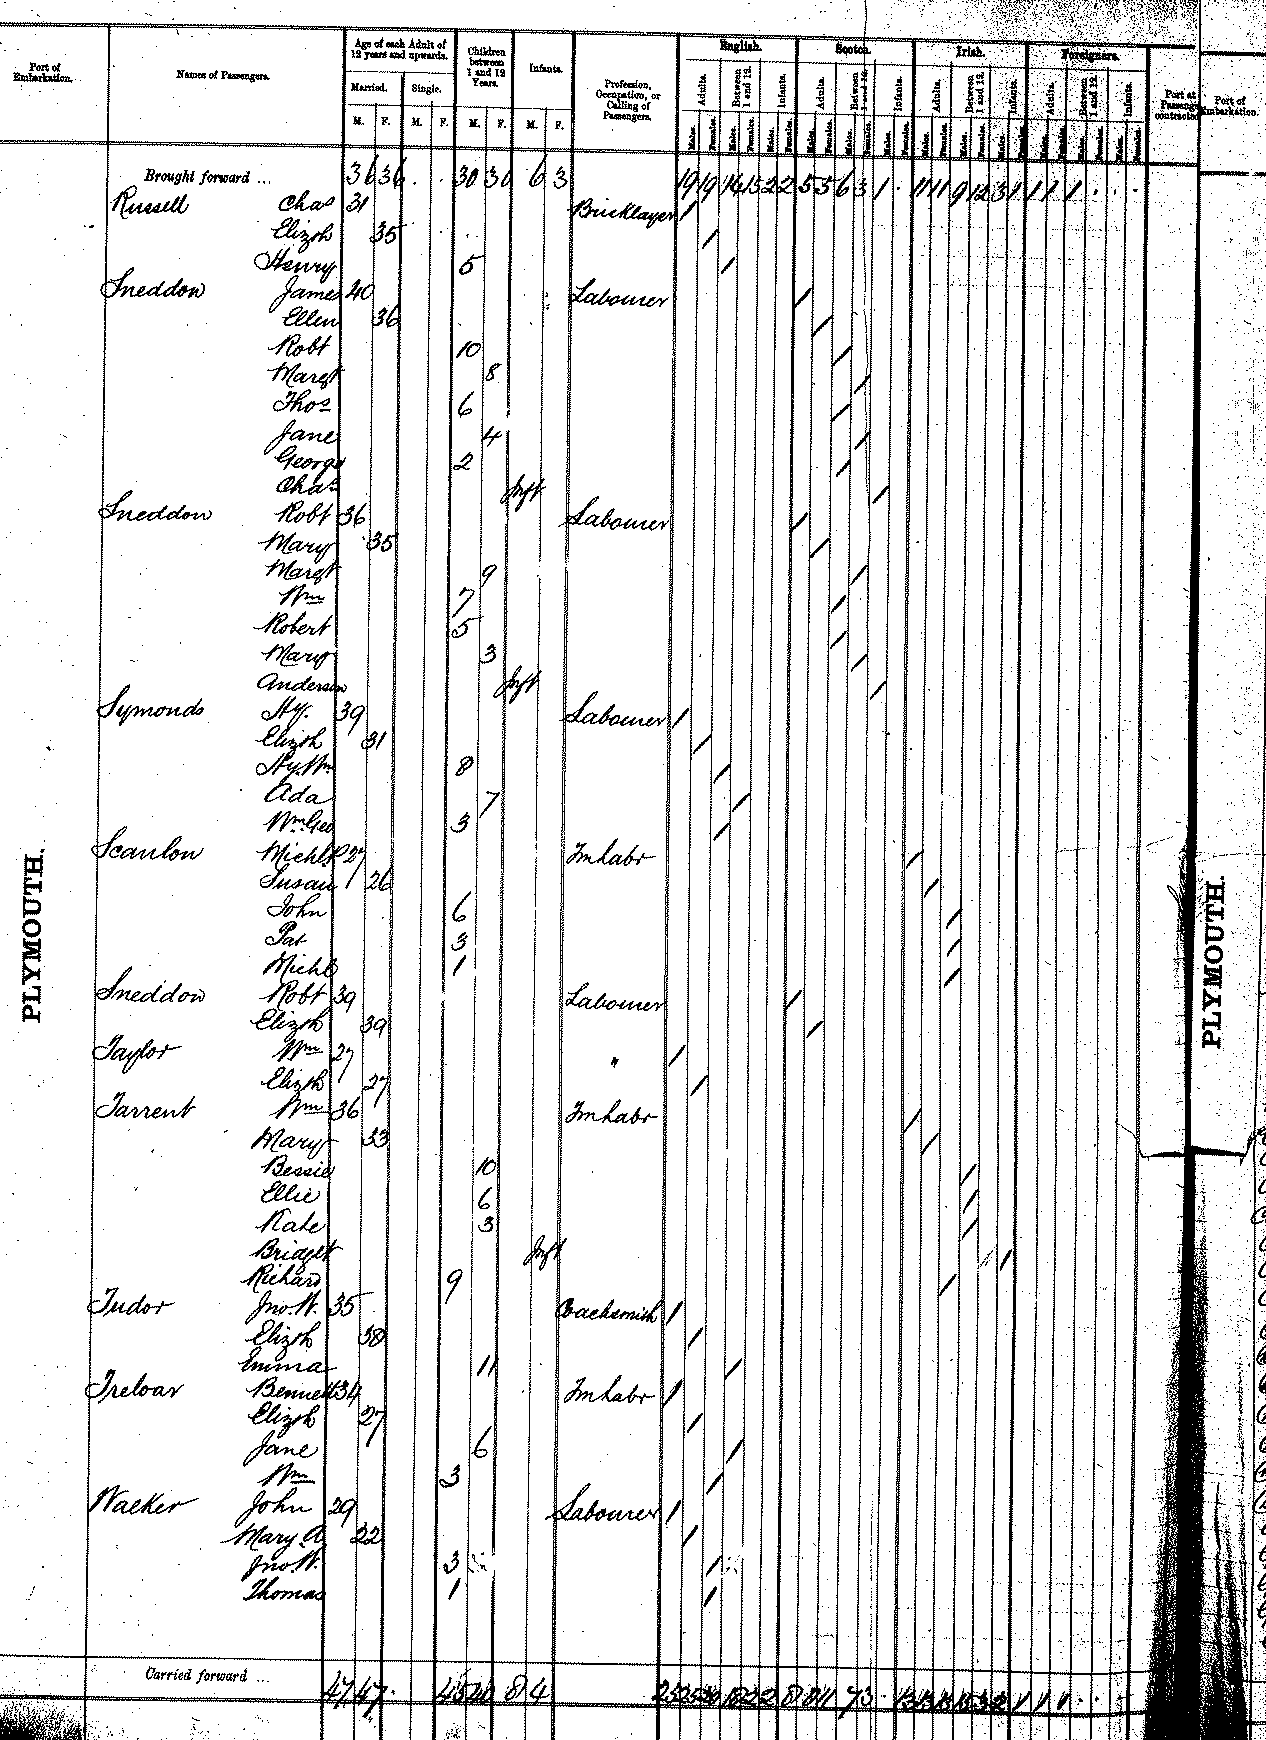 Port of Embarkation. Names of Passengers. Age of each Adult of 12 years and upwards. Children between 1 and 12 Years. Infants. Profession, Occupation, or Calling of Passengers. English. Scotch. Irish. Foreigners. Port at Passengers contracted Port of Embarkation.
Married. Single. Adults. Between 1 and 12. Infants. Adults. Between 1 and 12. Infants. Adults. Between 1 and 12. Infants. Adults. Between 1 and 12. Infants.
M. F. M. F. M. F. M. F. Males. Females. Males. Females. Males. Females. Males. Females. Males. Females. Males. Females. Males. Females. Males. Females. Males. Females. Males. Females. Males. Females. Males. Females.
Brought forward ... 36 36 . . 30 30 6 3 19 19 14 15 2 2 5 5 6 3 1 . 11 11 9 12 3 1 1 1 1 . . .
Russell Chas 31 Bricklayer /
Elizth 35 /
Henry 5 /
Sneddon James 40 Labourer /
Ellen 36 /
Robt 10 /
Margt 8 /
Thos 6 /
Jane 4 /
George 2 /
Chas Inft /
Sneddon Robt 36 Labourer /
Mary 35 /
Margt 9 /
Wm 7 /
Robert 5 /
Mary 3 /
Anderson Inft /
Symonds Hy. 39 Labourer /
Elizth 31 /
Hy. Wm 8 /
Ada 7 /
Wm Geo 3 /
Scanlon Michl 27 Fm labr /
Susan 26 /
John 6 /
Pat 3 /
Michl 1 /
Sneddon Robt 39 Labourer /
Elizth 39 /
Taylor Wm 27 " /
Elizth 27 /
Tarrent Wm 36 Fm labr /
Mary 33 /
Bessie 10 /
Ellie 6 /
Kate 3 /
Bridget Inft /
Richard 9 /
Tudor Jno. W. 35 /
Elizth 38 /
Emma 11 /
Treloar Bennett 34 Fm labr /
Elizth 27 /
Jane 6 /
Wm 3 /
Walker John 29 Labourer /
Mary A 22 /
Jno. W. 3 /
Thomas 1 /
Carried forward ... 47 47 . 8 4
PLYMOUTH.
PLYMOUTH.